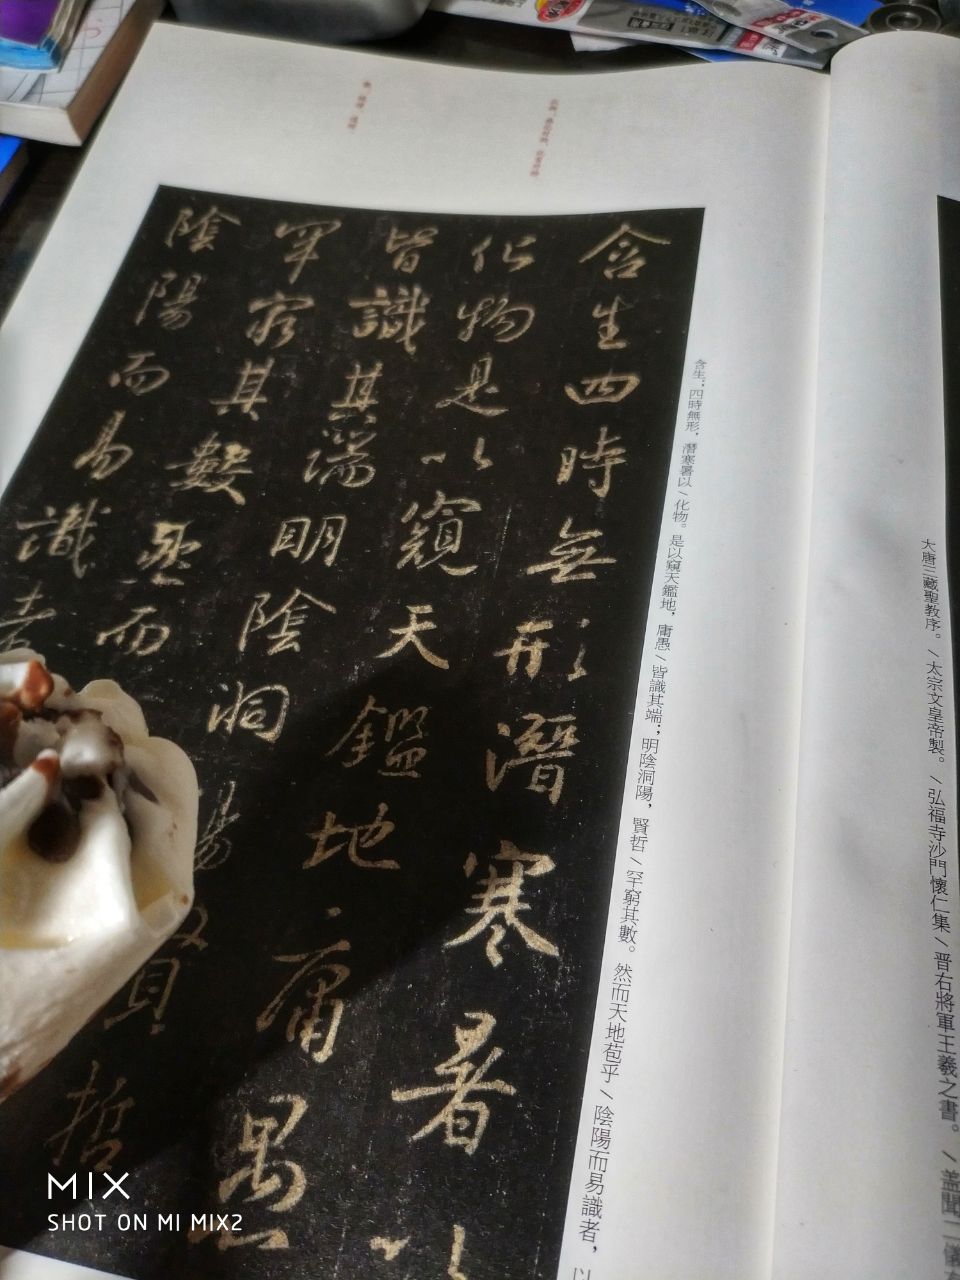 含生四時無形潛寒暑以
化物是以窺天鑑地庸愚
皆識其端明陰洞陽賢哲
罕窮其數然而
陰陽而易識者
含生；四時無形，潛寒暑以\化物。是以窺天鑑地，庸愚\皆識其端；明陰洞陽，賢哲\罕窮其數。然而天地苞乎\陰陽而易識者，以
大唐三藏聖教序。\太宗文皇帝製。\弘福寺沙門懷仁集\晋右將軍王羲之書。\蓋聞二儀有
MIX
SHOT ON MI MIX2